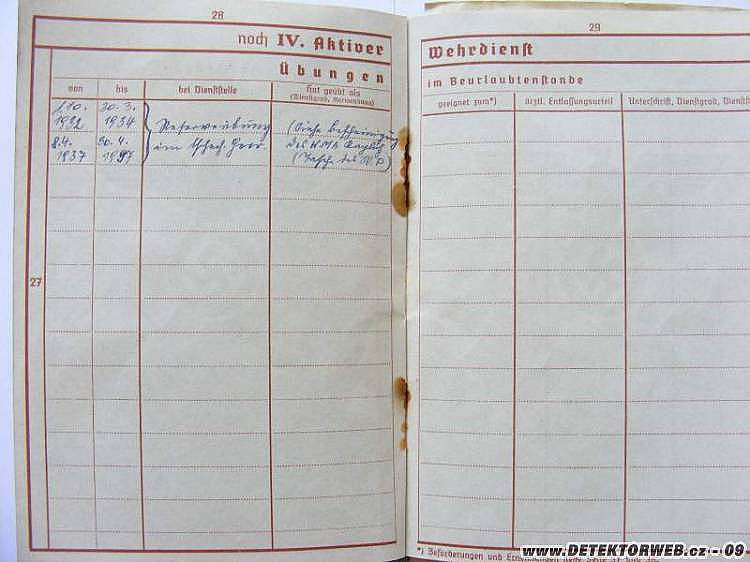 28
noch IV. Aktiver
Übungen
von bis bei Dienststelle Hat geübt als
(Dienstgrad,
1.10. 30.3.
1932 1934 Reserveübung (Siehe Bescheinigung
8.4. 30.4. im tschech. Heer. des WMA
1937 1937 (Tasche des WP)
27
29
Wehrdienst
im Beurlaubtenstande
geeignet zum*) ärztl. Entlassungsurteil Unterschrift, Dienstgrad, Dienstst
*) Beförderungen und
www.DETEKTORWEB.cz - 09